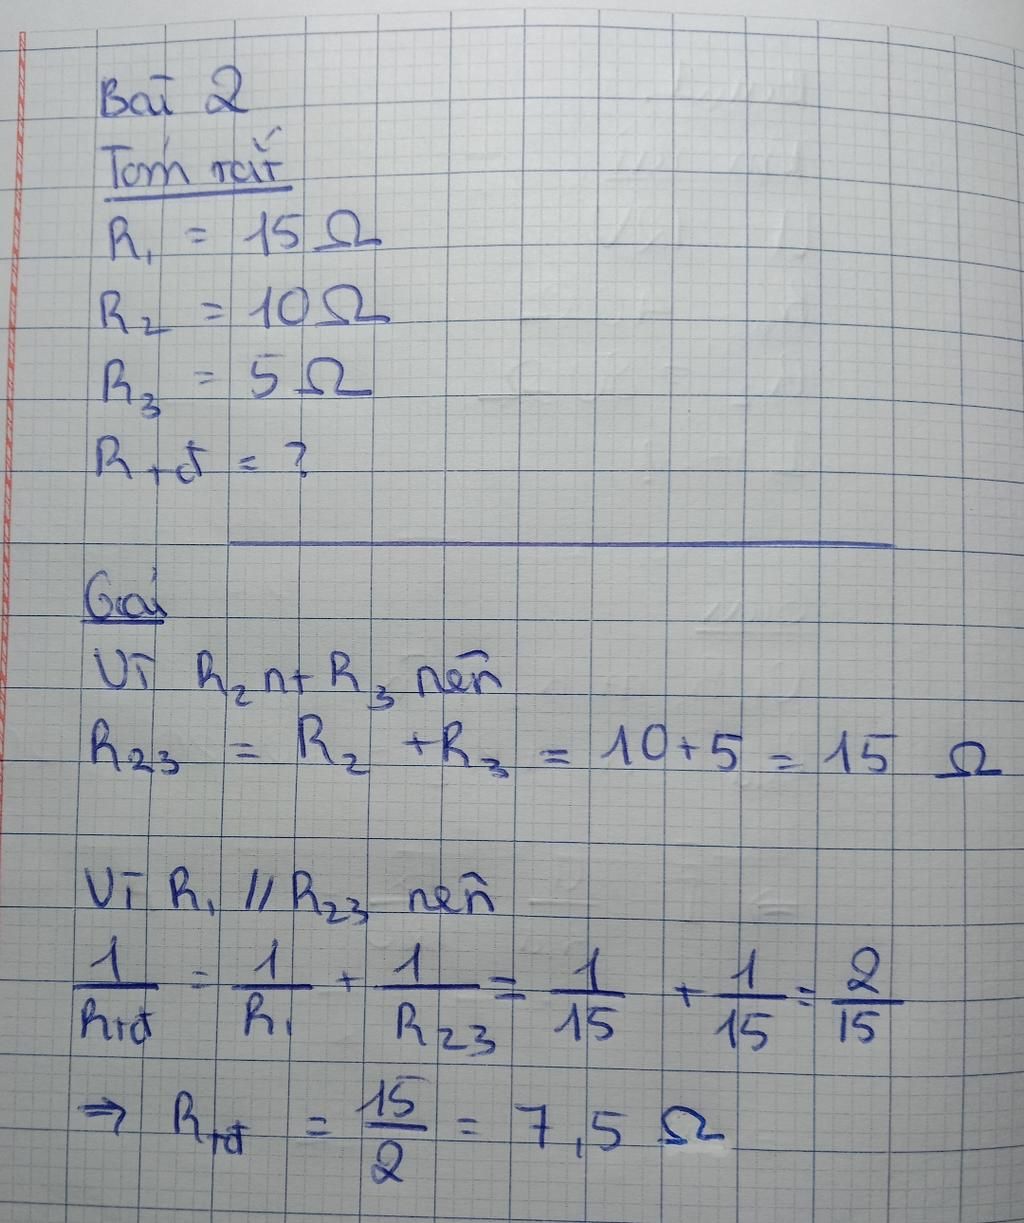 Bài 2
Tóm tắt
R₁ = 15 Ω
R₂ = 10 Ω
R₃ = 5 Ω
Rtđ = ?
Giải
Vì R₂ nt R₃ nên
R₂₃ = R₂ + R₃ = 10 + 5 = 15 Ω
Vì R₁ // R₂₃ nên
1/Rtđ = 1/R₁ + 1/R₂₃ = 1/15 + 1/15 = 2/15
⇒ Rtđ = 15/2 = 7,5 Ω